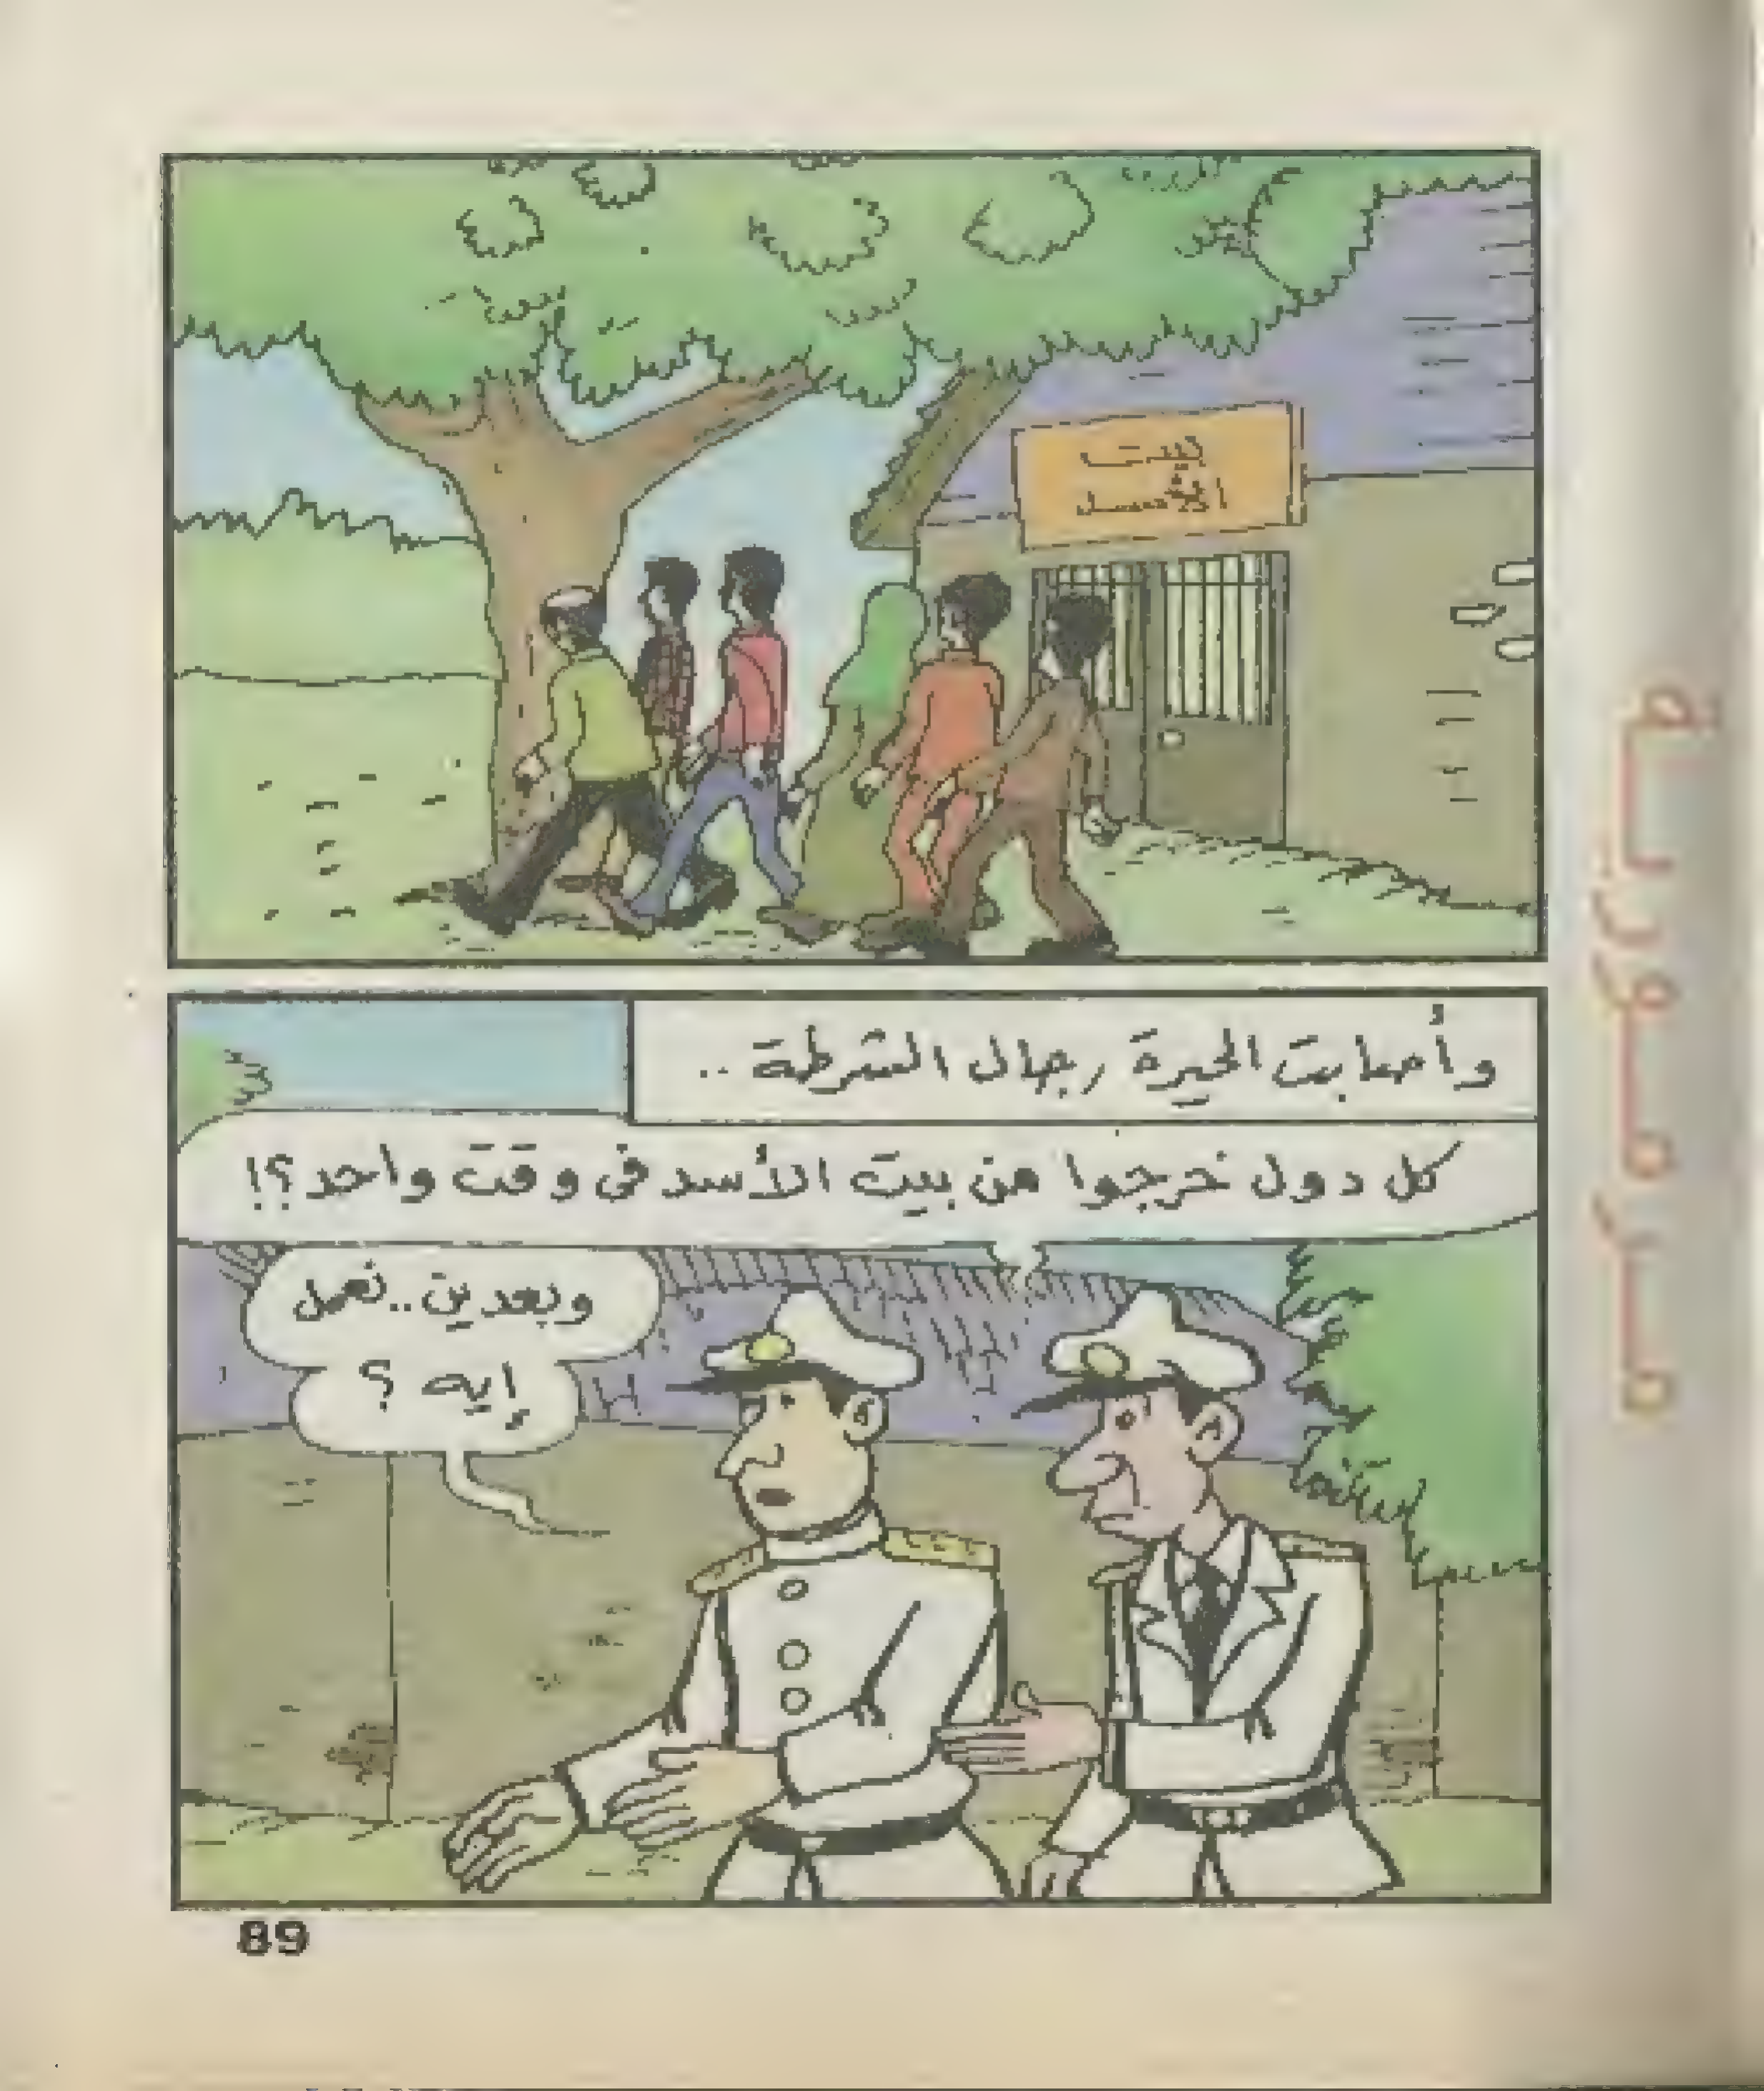 بيت
الأسد
وأصابت الحيرة رجال الشرطة ..
كل دول خرجوا من بيت الأسد فى وقت واحد؟!
وبعدين.. نعمل
إيه ؟
89